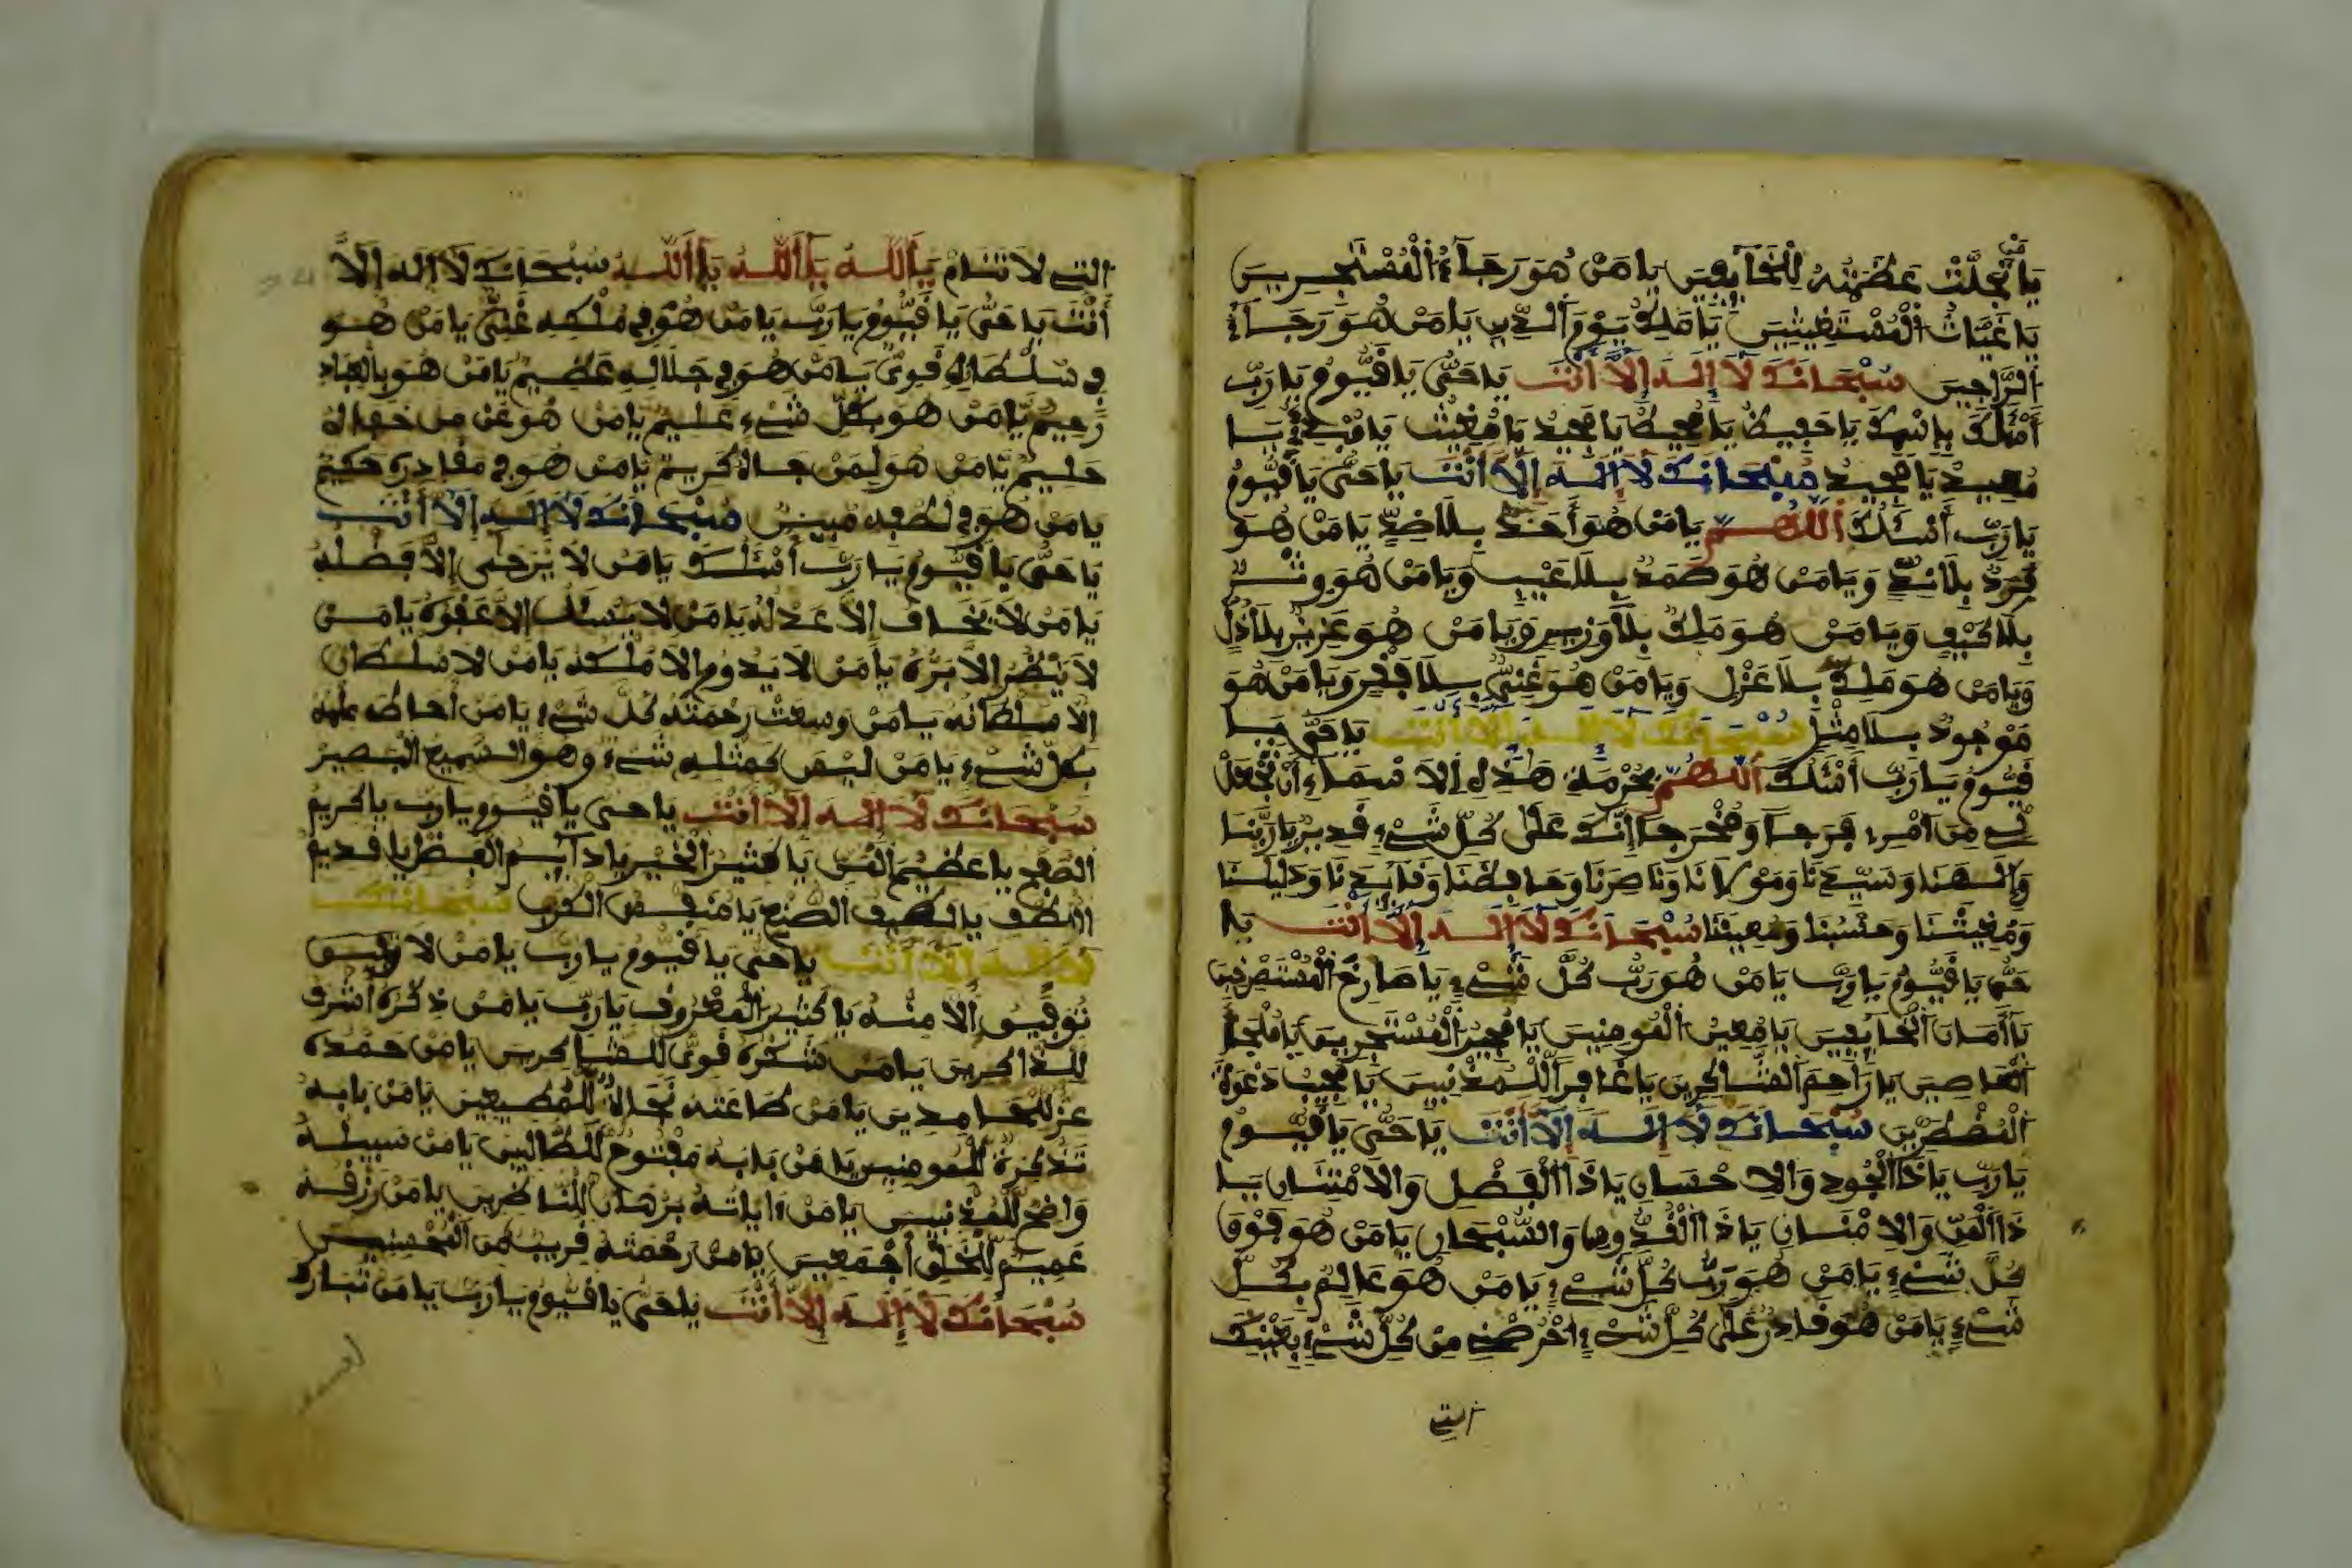 يَا مَنْ تَجَلَّتْ عَظَمَتُهُ لِلْخَآئِفِينَ يَا مَنْ هُوَ رَجَآءُ الْمُسْتَجِيرِينَ
يَا غِيَّاثَ الْمُسْتَغِيثِينَ يَا مَلِكَ يَوْمِ الدِّينِ يَا مَنْ هُوَ رَجَآءُ
الرَّاجِينَ سُبْحَانَكَ لَا إِلَهَ إِلَّا أَنْتَ يَا حَيُّ يَا قَيُّومُ يَا رَبِّ
أَسْأَلُكَ بِاسْمِكَ يَا حَفِيظُ يَا مُحِيطُ يَا مَجِيدُ يَا مُغِيثُ يَا مُبْدِئُ يَا
مُعِيدُ يَا مَجِيدُ سُبْحَانَكَ لَا إِلَهَ إِلَّا أَنْتَ يَا حَيُّ يَا قَيُّومُ
يَا رَبِّ أَسْئَلُكَ اللَّهُمَّ يَا مَنْ هُوَ أَحَدٌ بِلَا ضِدٍّ يَا مَنْ هُوَ
فَرْدٌ بِلَا نِدٍّ وَيَا مَنْ هُوَ صَمَدٌ بِلَا عَيْبٍ وَيَا مَنْ هُوَ وِتْرٌ
بِلَا كَيْفٍ وَيَا مَنْ هُوَ مَلِكٌ بِلَا وَزِيرٍ وَيَا مَنْ هُوَ عَزِيزٌ بِلَا ذُلٍّ
وَيَا مَنْ هُوَ مَلِكٌ بِلَا عَزْلٍ وَيَا مَنْ هُوَ غَنِيٌّ بِلَا فَقْرٍ وَيَا مَنْ هُوَ
مَوْجُودٌ بِلَا مِثْلٍ سُبْحَانَكَ لَا إِلَهَ إِلَّا أَنْتَ يَا حَيُّ يَا
قَيُّومُ يَا رَبِّ أَسْئَلُكَ اللَّهُمَّ بِحُرْمَةِ هَذِهِ الْاَسْمَاءِ أَنْ تَجْعَلَ
لِي مِنْ أَمْرِي فَرَجاً وَمَخْرَجاً إِنَّكَ عَلَى كُلِّ شَيْءٍ قَدِيرٌ يَا رَبَّنَا
وَإِلَهَنَا وَسَيِّدَنَا وَمَوْلَانَا وَنَاصِرَنَا وَحَافِظَنَا وَقَائِدَنَا وَدَلِيلَنَا
وَمُغِيثَنَا وَحَسْبَنَا وَمُعِينَنَا سُبْحَانَكَ لَا إِلَهَ إِلَّا أَنْتَ يَا
حَيُّ يَا قَيُّومُ يَا رَبِّ يَا مَنْ هُوَ رَبُّ كُلِّ شَيْءٍ يَا صَارِخَ الْمُسْتَصْرِخِينَ
يَا أَمَانَ الْخَآئِفِينَ يَا مُعِينَ الْمُومِنِينَ يَا مُجِيرَ الْمُسْتَجِيرِينَ يَا مَلْجَأَ
الْعَاصِينَ يَا رَاحِمَ الشَّاكِرِينَ يَا غَافِراً لِلْمُذْنِبِينَ يَا مُجِيبَ دَعْوَةِ
الْمُضْطَرِّينَ سُبْحَانَكَ لَا إِلَهَ إِلَّا أَنْتَ يَا حَيُّ يَا قَيُّومُ
يَا رَبِّ يَا ذَا الْجُودِ وَالْاِحْسَانِ يَا ذَا الْفَضْلِ وَالْاِمْتِنَانِ يَا
ذَا الْمَنِّ وَالْاِمْتِنَانِ يَا ذَا الْقُدُّوسِ وَالسُّبْحَانِ يَا مَنْ هُوَ فَوْقَ
كُلِّ شَيْءٍ يَا مَنْ هُوَ رَبُّ كُلِّ شَيْءٍ يَا مَنْ هُوَ عَالِمٌ بِكُلِّ
شَيْءٍ يَا مَنْ هُوَ قَادِرٌ عَلَى كُلِّ شَيْءٍ احْرُصْنِي مِنْ كُلِّ شَيْءٍ بِعَيْنِكَ
التي
التي لَا تَنَامْ يَا اَللَّهُ يَا اَللَّهُ يَا اَللَّهُ سُبْحَانَكَ لَا إِلَهَ إِلَّا
أَنْتَ يَا حَيُّ يَا قَيُّومُ يَا رَبِّ يَا مَنْ هُوَ فِي مُلْكِهِ غَنِيٌّ يَا مَنْ هُوَ
فِي سُلْطَانِهِ قَوِيٌّ يَا مَنْ هُوَ فِي جَلَالِهِ عَظِيمٌ يَا مَنْ هُوَ بِالْعِبَادِ
رَحِيمٌ يَا مَنْ هُوَ بِكُلِّ شَيْءٍ عَلِيمٌ يَا مَنْ هُوَ عَنْ مَن
حَلِيمٌ يَا مَنْ هُوَ لِمَنْ كَرِيمٌ يَا مَنْ هُوَ فِي مَقَادِرِهِ حَكِيمٌ
يَا مَنْ هُوَ فِي لُطْفِهِ مُبِينٌ سُبْحَانَكَ لَا إِلَهَ إِلَّا أَنْتَ
يَا حَيُّ يَا قَيُّومُ يَا رَبِّ أَسْئَلُكَ يَا مَنْ لَا يُرْجَى إِلَّا فَضْلُهُ
يَا مَنْ لَا يُخَافُ إِلَّا عَدْلُهُ يَا مَنْ لَا يُسْئَلُ إِلَّا عَفْوُهُ يَا مَنْ
لَا يُنْظَرُ إِلَّا بِرُّهُ يَا مَنْ لَا يَدُومُ إِلَّا مُلْكُهُ يَا مَنْ لَا سُلْطَانَ
إِلَّا سُلْطَانُهُ يَا مَنْ وَسِعَتْ رَحْمَتُهُ كُلَّ شَيْءٍ يَا مَنْ أَحَاطَ عِلْمُهُ
بِكُلِّ شَيْءٍ يَا مَنْ لَيْسَ كَمِثْلِهِ شَيْءٌ وَهُوَ السَّمِيعُ الْبَصِيرُ
سُبْحَانَكَ لَا إِلَهَ إِلَّا أَنْتَ يَا حَيُّ يَا قَيُّومُ يَا رَبِّ يَا كَرِيمَ
الصَّفْحِ يَا عَظِيمَ الْمَنِّ يَا كَثِيرَ الْخَيْرِ يَا دَآئِمَ الْفَضْلِ يَا قَدِيمَ
اللُّطْفِ يَا لَطِيفَ الصُّنْعِ يَا مُنَفِّسَ الْكَرْبِ سُبْحَانَكَ
لَا إِلَهَ إِلَّا أَنْتَ يَا حَيُّ يَا قَيُّومُ يَا رَبِّ يَا مَنْ لَا
تَوْفِيقَ إِلَّا مِنْهُ يَا كَثِيرَ الْمَعْرُوفِ يَا رَبِّ يَا مَنْ ذِكْرُهُ أَشْرَفُ
لِلذَّاكِرِينَ يَا مَنْ شُكْرُهُ قَوِيٌّ لِلشَّاكِرِينَ يَا مَنْ حَمْدُهُ
عِزٌّ لِلْحَامِدِينَ يَا مَنْ طَاعَتُهُ نَجَاةٌ لِلْمُطِيعِينَ يَا مَنْ بَابُهُ
تَذْكِرَةٌ لِلْمُومِنِينَ يَا مَنْ بَابُهُ مَفْتُوحٌ لِلطَّالِبِينَ يَا مَنْ سَبِيلُهُ
وَاضِحٌ لِلْمُذْنِبِينَ يَا مَنْ ءَايَاتُهُ بُرْهَانٌ لِلنَّاظِرِينَ يَا مَنْ رِزْقُهُ
عَمِيمٌ لِلْخَلْقِ أَجْمَعِينَ يَا مَنْ رَحْمَتُهُ قَرِيبٌ مِنَ الْمُحْسِنِينَ
سُبْحَانَكَ لَا إِلَهَ إِلَّا أَنْتَ يَا حَيُّ يَا قَيُّومُ يَا رَبِّ يَا مَنْ تَبَارَكَ